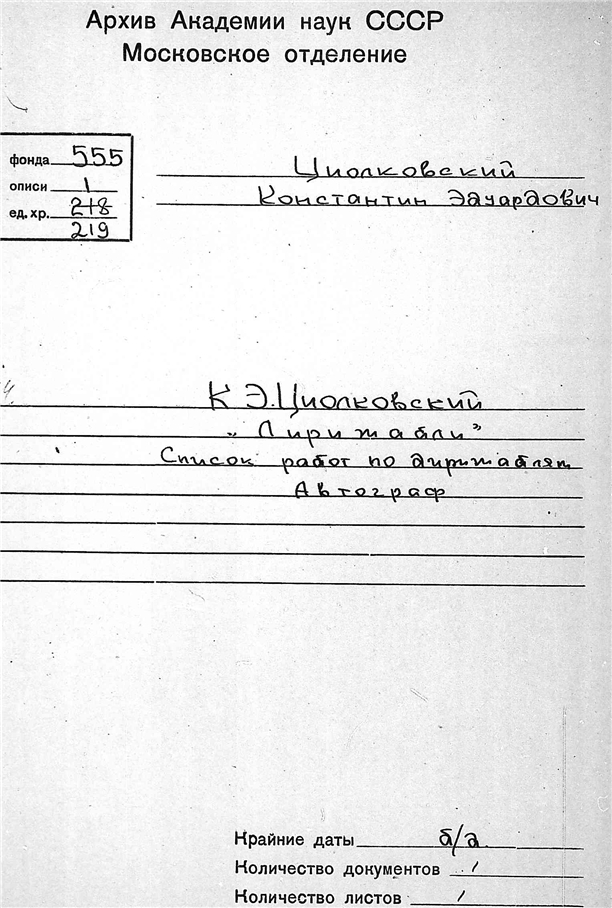 Архив Академии наук СССР
Московское отделение
фонда 555
описи 1
ед. хр. 218
219
Циолковский
Константин Эдуардович
К Э.Циолковский
„Дирижабли"
Список работ по дирижаблям
Автограф
Крайние даты б/д
Количество документов 1
Количество листов 1